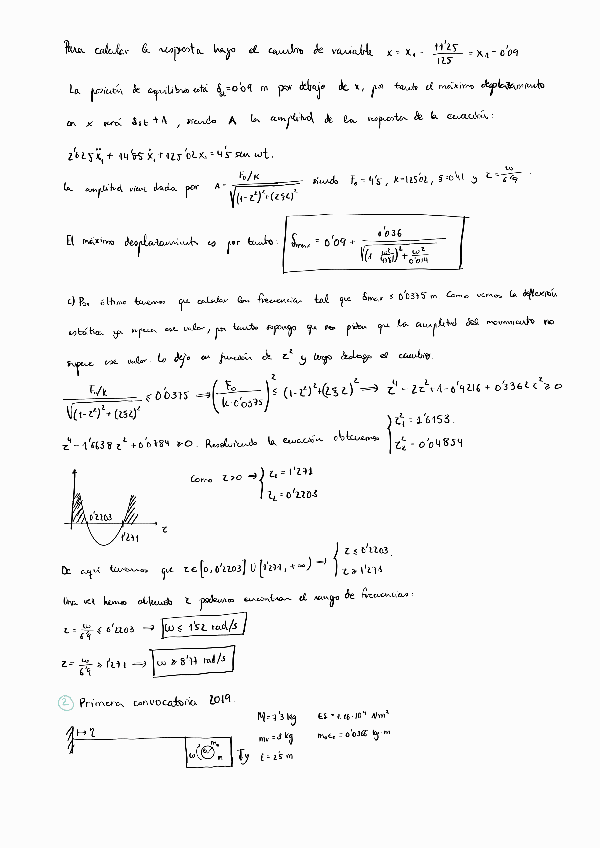 Para calcular la respuesta hago el cambio de variable x = x₁ - 11'25/125 = x₁ - 0'09
La posición de equilibrio está δst=0'09 m por debajo de x, por tanto el máximo desplazamiento
en x será δst + A, siendo A la amplitud de la respuesta de la ecuación:
2'025ẍ₁ + 14'85ẋ₁ + 125'02x₁ = 4'5 sen wt.
La amplitud viene dada por A = F₀/K / √((1-z²)²+(2ξz)²) siendo F₀=4'5, K=125'02, ξ=0'41 y z = w/6'9.
El máximo desplazamiento es por tanto: δmax = 0'09 + 0'036 /
c) Por último tenemos que calcular las frecuencias tal que δmax ≤ 0'0375 m como vemos la deflexión
estática ya supera ese valor, por tanto supongo que nos piden que la amplitud del movimiento no
supere ese valor. Lo dejo en función de z² y luego deshago el cambio.
F₀/K / √((1-z²)²+(2ξz)²) ≤ 0'0375 → (F₀/(K·0'0375))² ≤ (1-z²)²+(2ξz)² → z⁴ - 2z² + 1 - 0'9216 + 0'3362z² ≥ 0
z⁴ - 1'6638z² + 0'0784 ≥ 0. Resolviendo la ecuación obtenemos { z₁² = 1'6153. z₂² = 0'04854
Como z>0 → { z₁ = 1'271 z₂ = 0'2203
0'2203 1'271 z
De aquí tenemos que z∈[0, 0'2203] U [1'271, +∞) → { z ≤ 0'2203. z ≥ 1'271
Una vez hemos obtenido z podemos encontrar el rango de frecuencias:
z = w/6'9 ≤ 0'2203 → w ≤ 1'52 rad/s
z = w/6'9 ≥ 1'271 → w ≥ 8'77 rad/s
2 Primera convocatoria 2019.
M = 7'3 kg
mᵥ = 8 kg m₀e₀ = 0'0366 kg·m
w m y